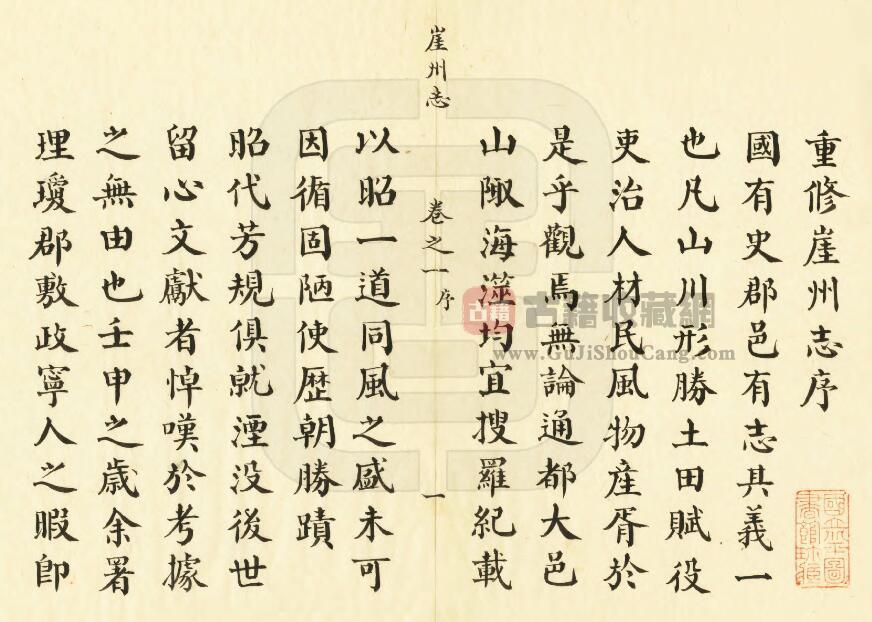 重修崖州志序
國有史郡邑有志其義一
也凡山川形勝土田賦役
吏治人材民風物產胥於
是乎觀焉無論通都大邑
山陬海澨均宜搜羅紀載
崖州志
卷之一 序
一
以昭一道同風之盛未可
因循固陋使歷朝勝蹟
昭代芳規俱就湮没後世
留心文獻者悼嘆於考據
之無由也壬申之歲余署
理瓊郡敷政寧人之暇卽
古籍 古籍收藏網
www.GuJiShouCang.com